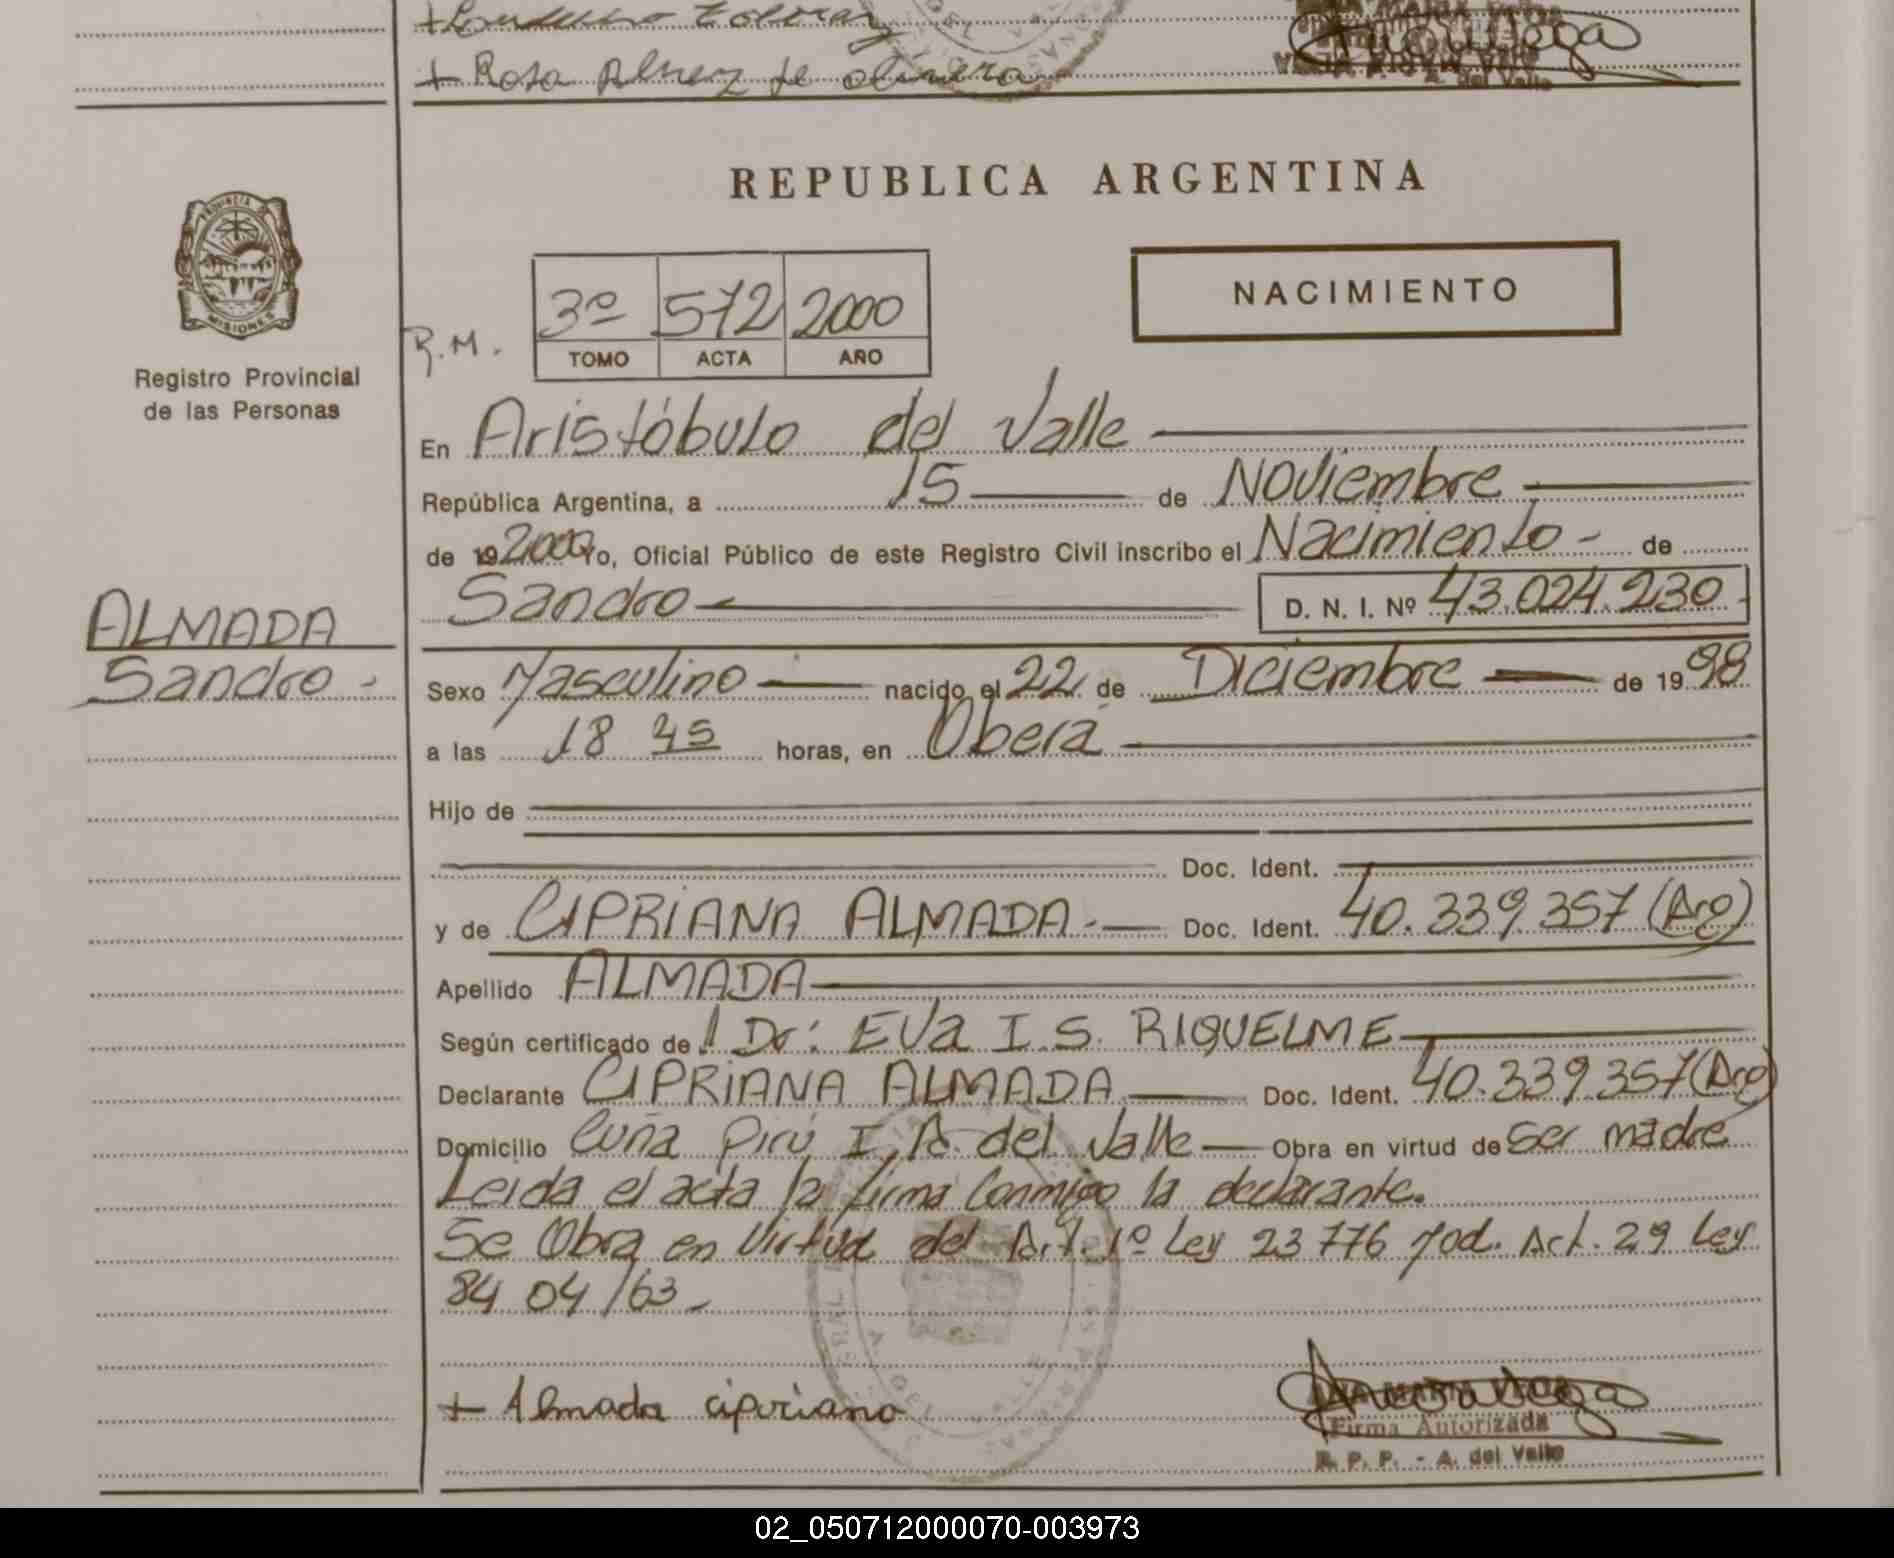 + Rosa Alvez de Olivera
A. del Valle
REPUBLICA ARGENTINA
PROVINCIA DE
MISIONES
Registro Provincial
de las Personas
R.M.
3º 572 2000
TOMO ACTA AÑO
NACIMIENTO
En Aristóbulo del Valle
República Argentina, a 15 de Noviembre
de 19 2000 Yo, Oficial Público de este Registro Civil inscribo el Nacimiento - de
Sandro D. N. I. Nº 43.024.230 -
ALMADA
Sandro -
Sexo Masculino nacido el 22 de Diciembre de 19 98
a las 18 45 horas, en Oberá
Hijo de
Doc. Ident.
y de CIPRIANA ALMADA - Doc. Ident. 40.339.357 (Arg)
Apellido ALMADA
Según certificado de / Dr: EVa I. S. RIQUELME
Declarante CIPRIANA ALMADA Doc. Ident. 40.339.357 (Arg)
Domicilio Cuña Pirú I, A. del Valle Obra en virtud de ser madre
Leida el acta la firma Conmigo la declarante.
Se Obra en Virtud del Art. 1º Ley 23776 Mod. Act. 29 Ley
84 04/63 -
+ Almada cipriano
Firma Autorizada
R. P. P. - A. del Valle
02_050712000070-003973